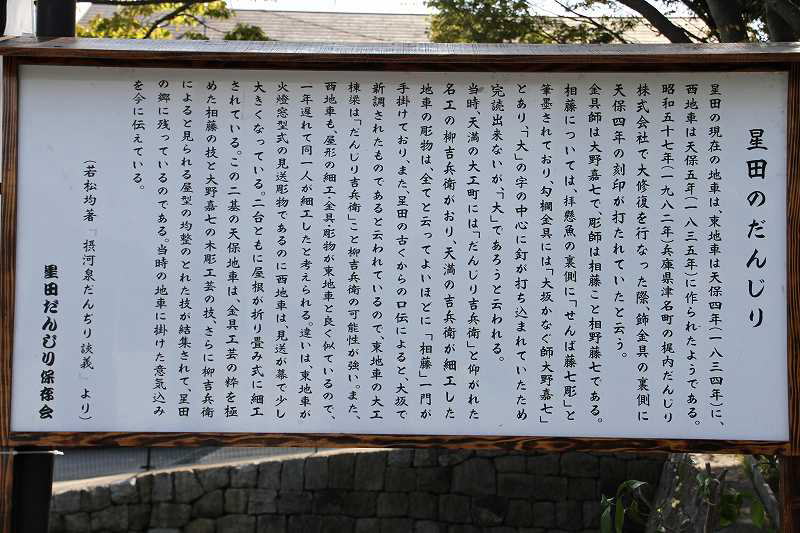 星田のだんじり
星田の現在の地車は、東地車は天保四年(一八三四年)に、
西地車は天保五年(一八三五年)に作られたようである。
昭和五十七年(一九八二年)兵庫県津名町の梶内だんじり
株式会社で大修復を行なった際、錺金具の裏側に
天保四年の刻印が打たれていたと云う。
金具師は大野嘉七で、彫師は相藤こと相野藤七である。
相藤については、拝懸魚の裏側に「せんば藤七彫」と
筆墨されており、勾欄金具には「大坂かなぐ師大野嘉七」
とあり、「大」の字の中心に釘が打ち込まれていたため
完読出来ないが、「大」であろうと云われる。
当時、天満の大工町には「だんじり吉兵衛」と仰がれた
名工の柳吉兵衛がおり、天満の吉兵衛が細工した
地車の彫物は、全てと云ってよいほどに「相藤」一門が
手掛けており、また、星田の古くからの口伝によると、大坂で
新調されたものであると云われているので、東地車の大工
棟梁は「だんじり吉兵衛」こと柳吉兵衛の可能性が強い。また、
西地車も、屋形の細工・金具彫物が東地車と良く似ているので、
一年遅れて同一人が細工したと考えられる。違いは、東地車が
火燈窓型式の見送彫物であるのに西地車は、見送が幕で少し
大きくなっている。二台ともに屋根が折り畳み式に細工
されている。この二基の天保地車は、金具工芸の粋を極
めた相藤の技と大野嘉七の木彫工芸の技、さらに柳吉兵衛
によると見られる屋型の均整のとれた技が結集されて、星田
の郷に残っているのである。当時の地車に掛けた意気込み
を今に伝えている。
(若松均著「摂河泉だんぢり談義」より)
星田だんじり保存会